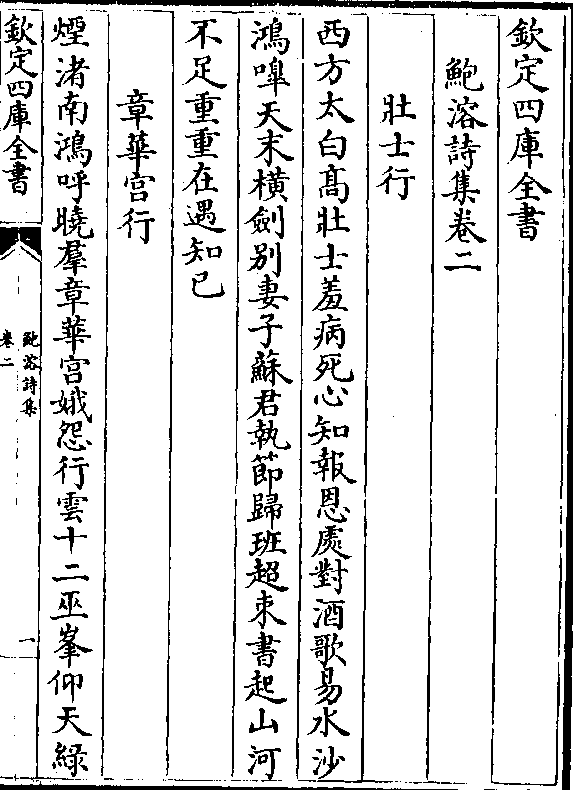 欽定四庫全書
鮑溶詩集卷二
壯士行
西方太白髙壯士羞病死心知報恩處對酒歌易水沙
鴻嘷天末橫劍别妻子蘇君執節歸班超束書起山河
不足重重在遇知已
章華宫行
煙渚南鴻呼曉羣章華宫娥怨行雲十二巫峯仰天緑
欽定四庫全書
鮑溶詩集
卷二
一